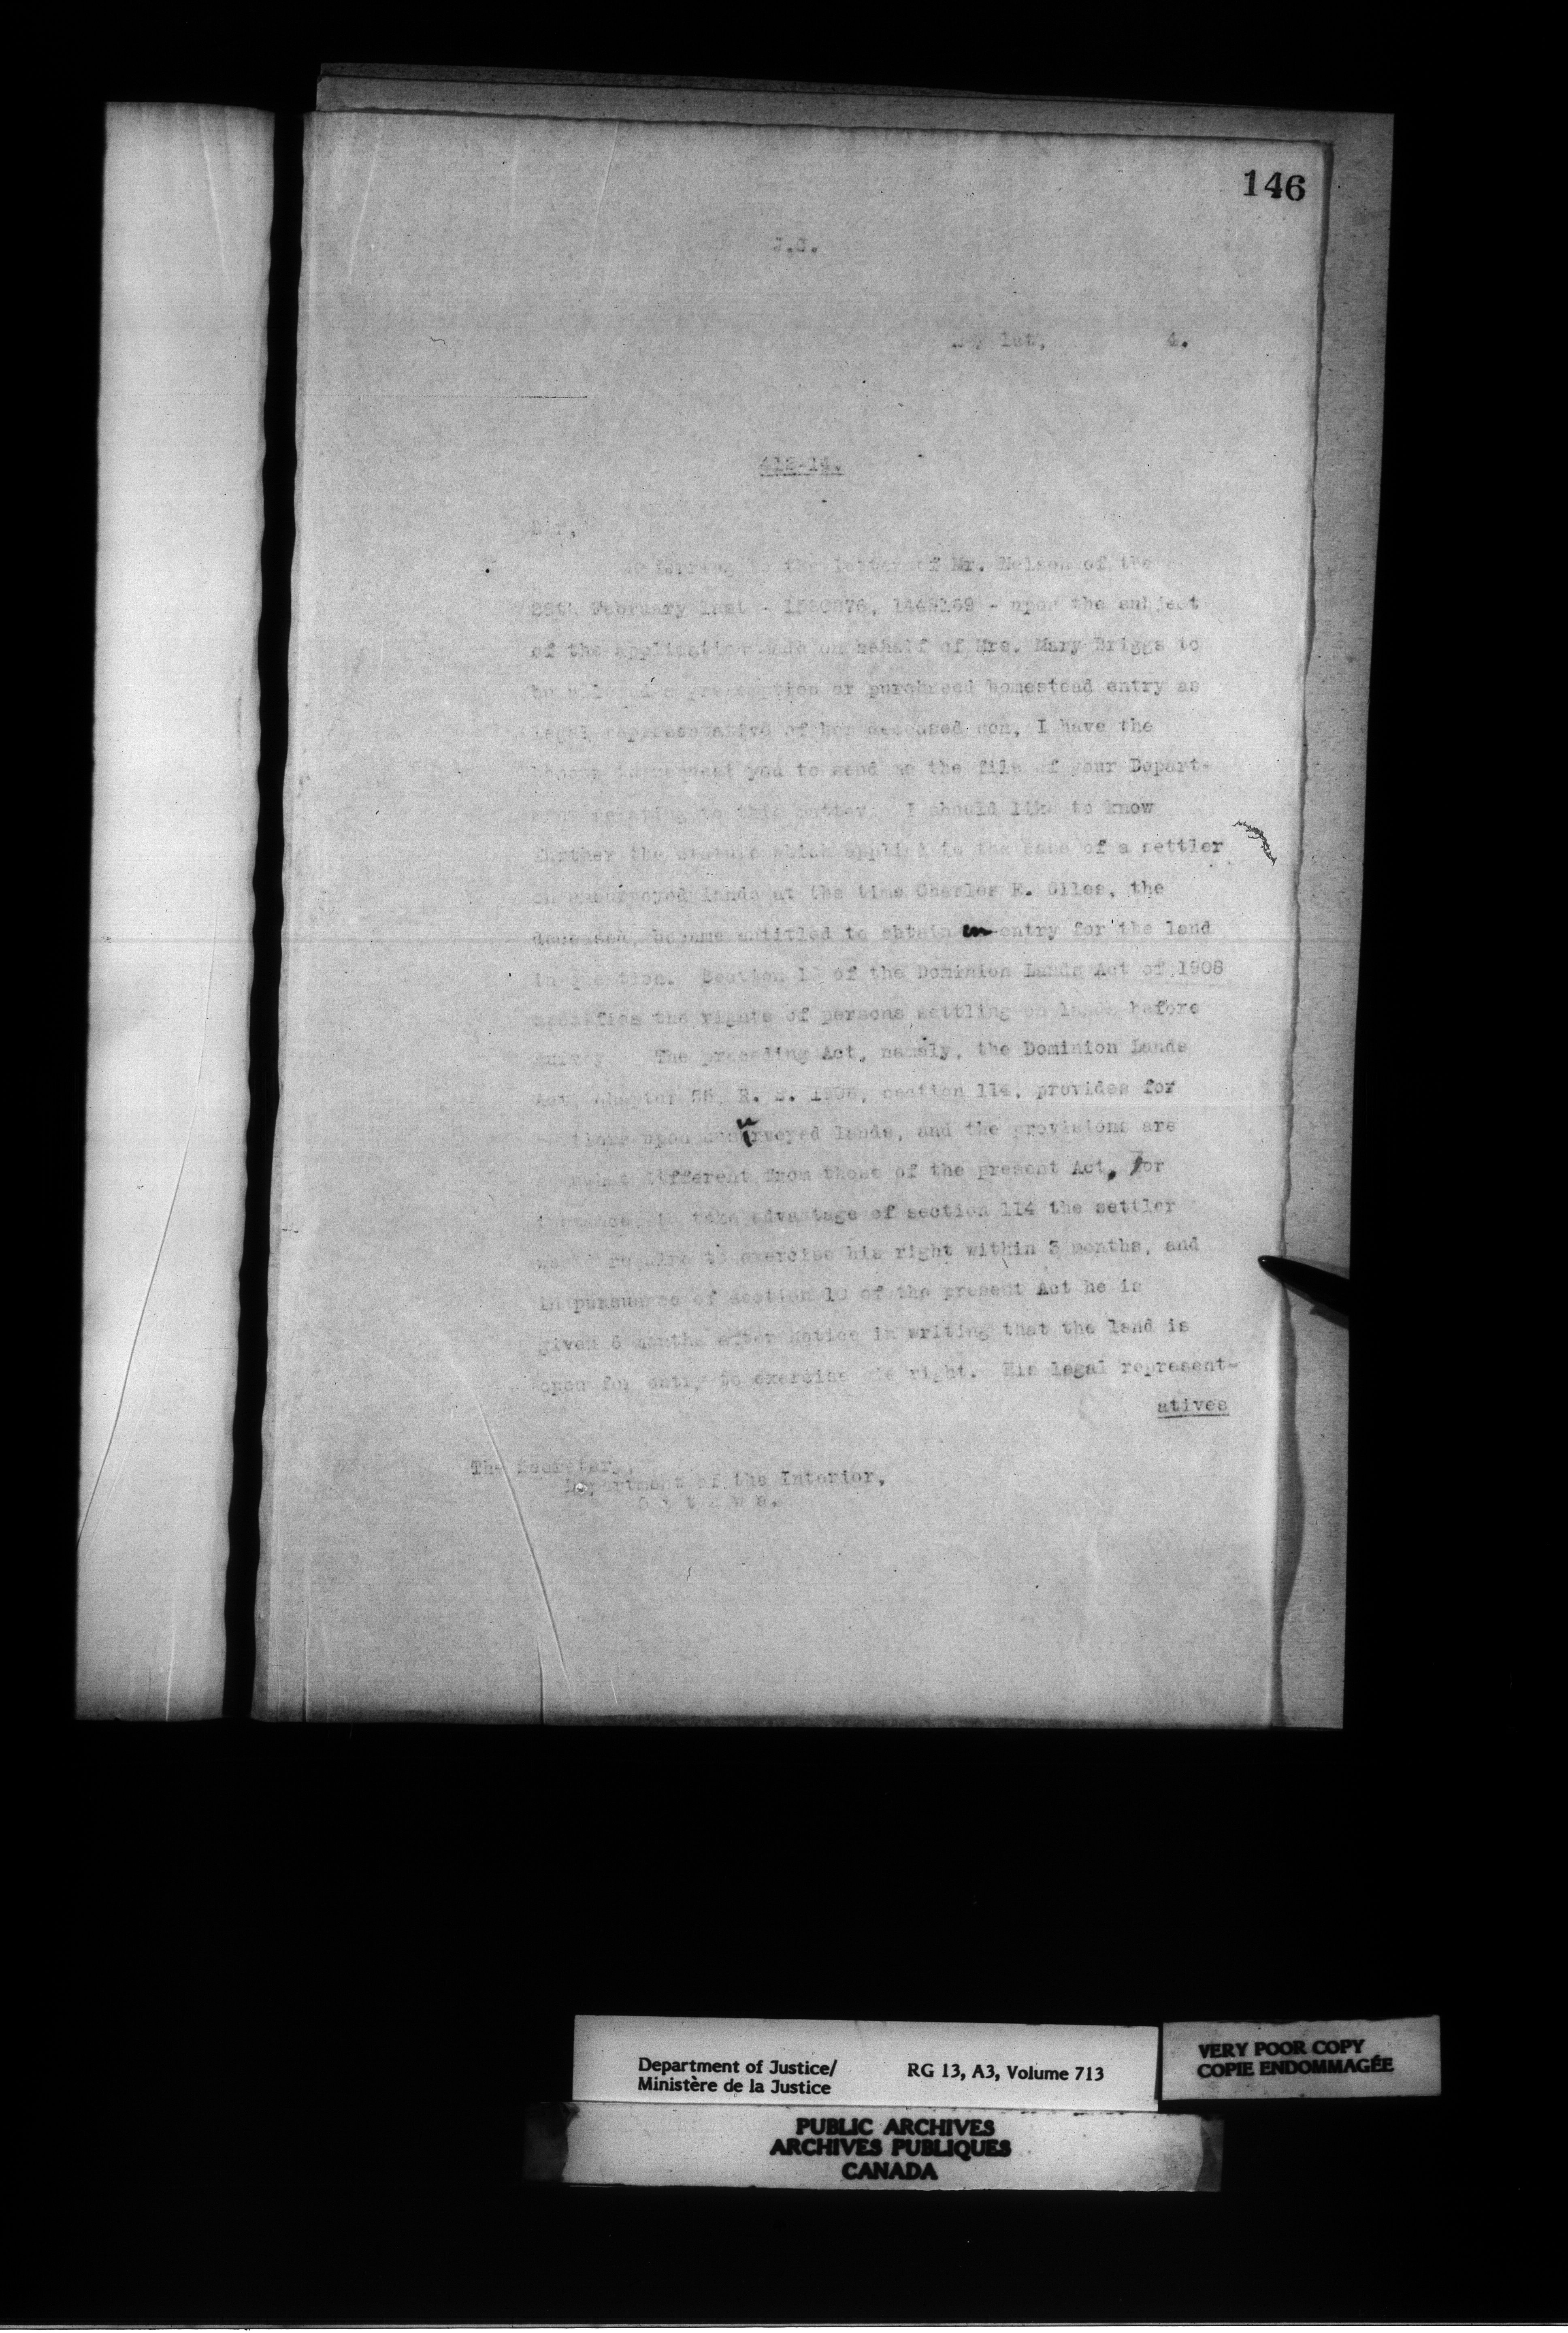 146
J.J.
May 1st, 4.
412-14.
Sir,
Referring to the letter of Mr. Nelson of the
February last - upon the subject
of the application made on behalf of Mrs. Mary Briggs to
or purchased homestead entry as
legal representative of her deceased son, I have the
honour to request you to send me the file of your Depart-
relating to this matter. I should like to know
further the statute which applied in the case of a settler
on unsurveyed lands at the time Charles E. Giles, the
deceased, became entitled to obtain entry for the land
in question. Section of the Dominion Lands Act of 1908
specifies the rights of persons settling on lands before
survey. The preceding Act, namely, the Dominion Lands
Act, chapter 55, R. S. 1906, section 114, provides for
upon unsurveyed lands, and the provisions are
somewhat different from those of the present Act, for
instance, to take advantage of section 114 the settler
to exercise his right within 3 months, and
in pursuance of section of the present Act he is
given 6 months after notice in writing that the land is
open for entry to exercise his right. His legal represent-
atives
The Secretary,
Department of the Interior,
O t t a w a.
Department of Justice/
Ministère de la Justice
RG 13, A3, Volume 713
VERY POOR COPY
COPIE ENDOMMAGÉE
PUBLIC ARCHIVES
ARCHIVES PUBLIQUES
CANADA